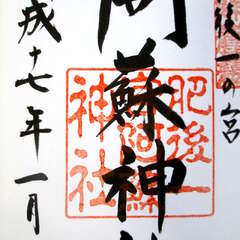 後一の宮
阿蘇神社
成十七年一月
肥後一
宮阿蘇
神社